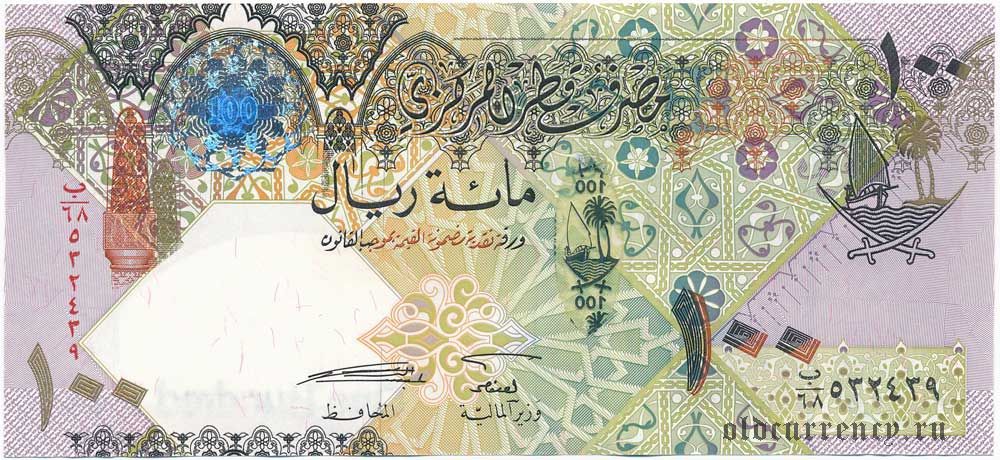 ١٠٠
مصرف قطر المركزي
100
مائة ريال
100
ورقة نقدية مضمونة القيمة بموجب القانون
100
ب/٦٨ ٥٣٢٤٣٩
١٠٠
١٠٠
وزير المالية
المحافظ
ب/٦٨ ٥٣٢٤٣٩
oldcurrency.ru